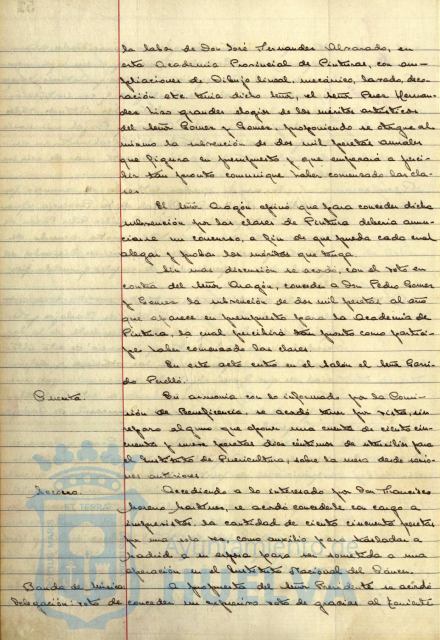 la labor de Don José Fernandez Alvarado, en
esta Academia Provincial de Pinturas, con am-
pliaciones de Dibujo lineal, mecánico, lavado, deco-
ración etc. tenia dicho Señor, el Señor Perez Hernan-
dez hizo grandes elogios de los méritos artisticos
del Señor Gomez y Gomez, proponiendo se otorgue al
mismo la subvención de dos mil pesetas anuales
que figura en presupuesto y que empezará a perci-
bir tan pronto comunique haber comenzado las cla-
ses.
El Señor Aragón opinó que para conceder dicha
subvención por las clases de Pintura deberia anun-
ciarse un concurso, a fin de que pueda cada cual
alegar y probar los méritos que tenga.
Sin mas discusión se acordó, con el voto en
contra del Señor Aragón, conceder a Don Pedro Gomez
y Gomez la subvención de dos mil pesetas al año
que aparece en presupuesto para la Academia de
Pintura, la cual percibirá tan pronto como partici-
pe haber comenzado las clases.
En este acto entra en el Salón el Señor Garri-
do Perelló.
Cuenta. En armonia con lo informado por la Comi-
sión de Beneficencia, se acordó tener por vista, sin
reparo alguno que oponer una cuenta de ciento cin-
cuenta y nueve pesetas diez céntimos de utensilio para
el Instituto de Puericultura, sobre la mesa desde sesio-
nes anteriores.
Socorro. Accediendo a lo interesado por Don Francisco
Moreno Martinez, se acordó concederle con cargo a
imprevistos, la cantidad de ciento cincuenta pesetas
por una sola vez, como auxilio para trasladar a
Madrid a su esposa para ser sometida a una
operación en el Instituto Nacional del Cáncer.
Banda de Música. A propuesta del Señor Presidente se acordó
Delegación: voto de conceder un expresivo voto de gracias al Teniente